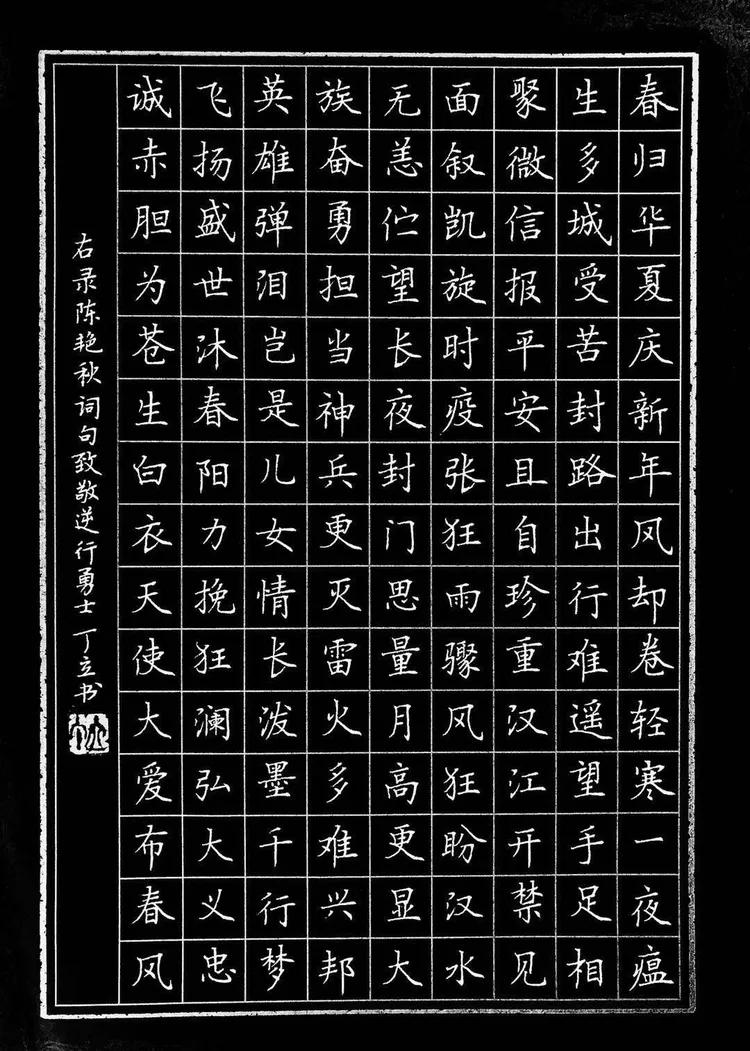 春归华夏庆新年风却卷轻寒一夜瘟
生多城受苦封路出行难遥望手足相
聚微信报平安且自珍重汉江开禁见
面叙凯旋时疫张狂雨骤风狂盼汉水
无恙伫望长夜封门思量月高更显大
族奋勇担当神兵更灭雷火多难兴邦
英雄弹泪岂是儿女情长泼墨千行梦
飞扬盛世沐春阳力挽狂澜弘大义忠
诚赤胆为苍生白衣天使大爱布春风
右录陈艳秋词句致敬逆行勇士 丁立书